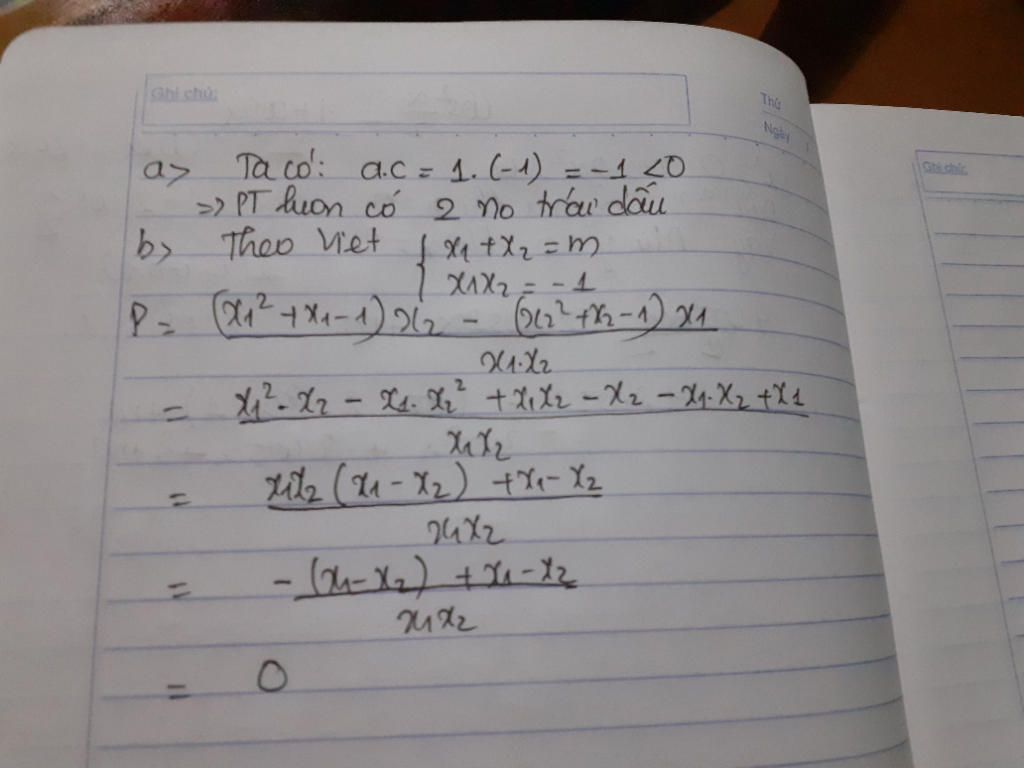 Ghi chú:
Thứ
Ngày
Ghi chú:
a> Ta có: a.c = 1.(-1) = -1 <0
=> PT luon có 2 no trái dấu
b> Theo Viet { x1 + x2 = m
x1x2 = -1
P = (x1² + x1 - 1) x2 - (x2² + x2 - 1) x1
x1.x2
= x1².x2 - x1.x2² + x1x2 - x2 - x1.x2 + x1
x1x2
= x1x2 (x1 - x2) + x1 - x2
x1x2
= -(x1 - x2) + x1 - x2
x1x2
= 0